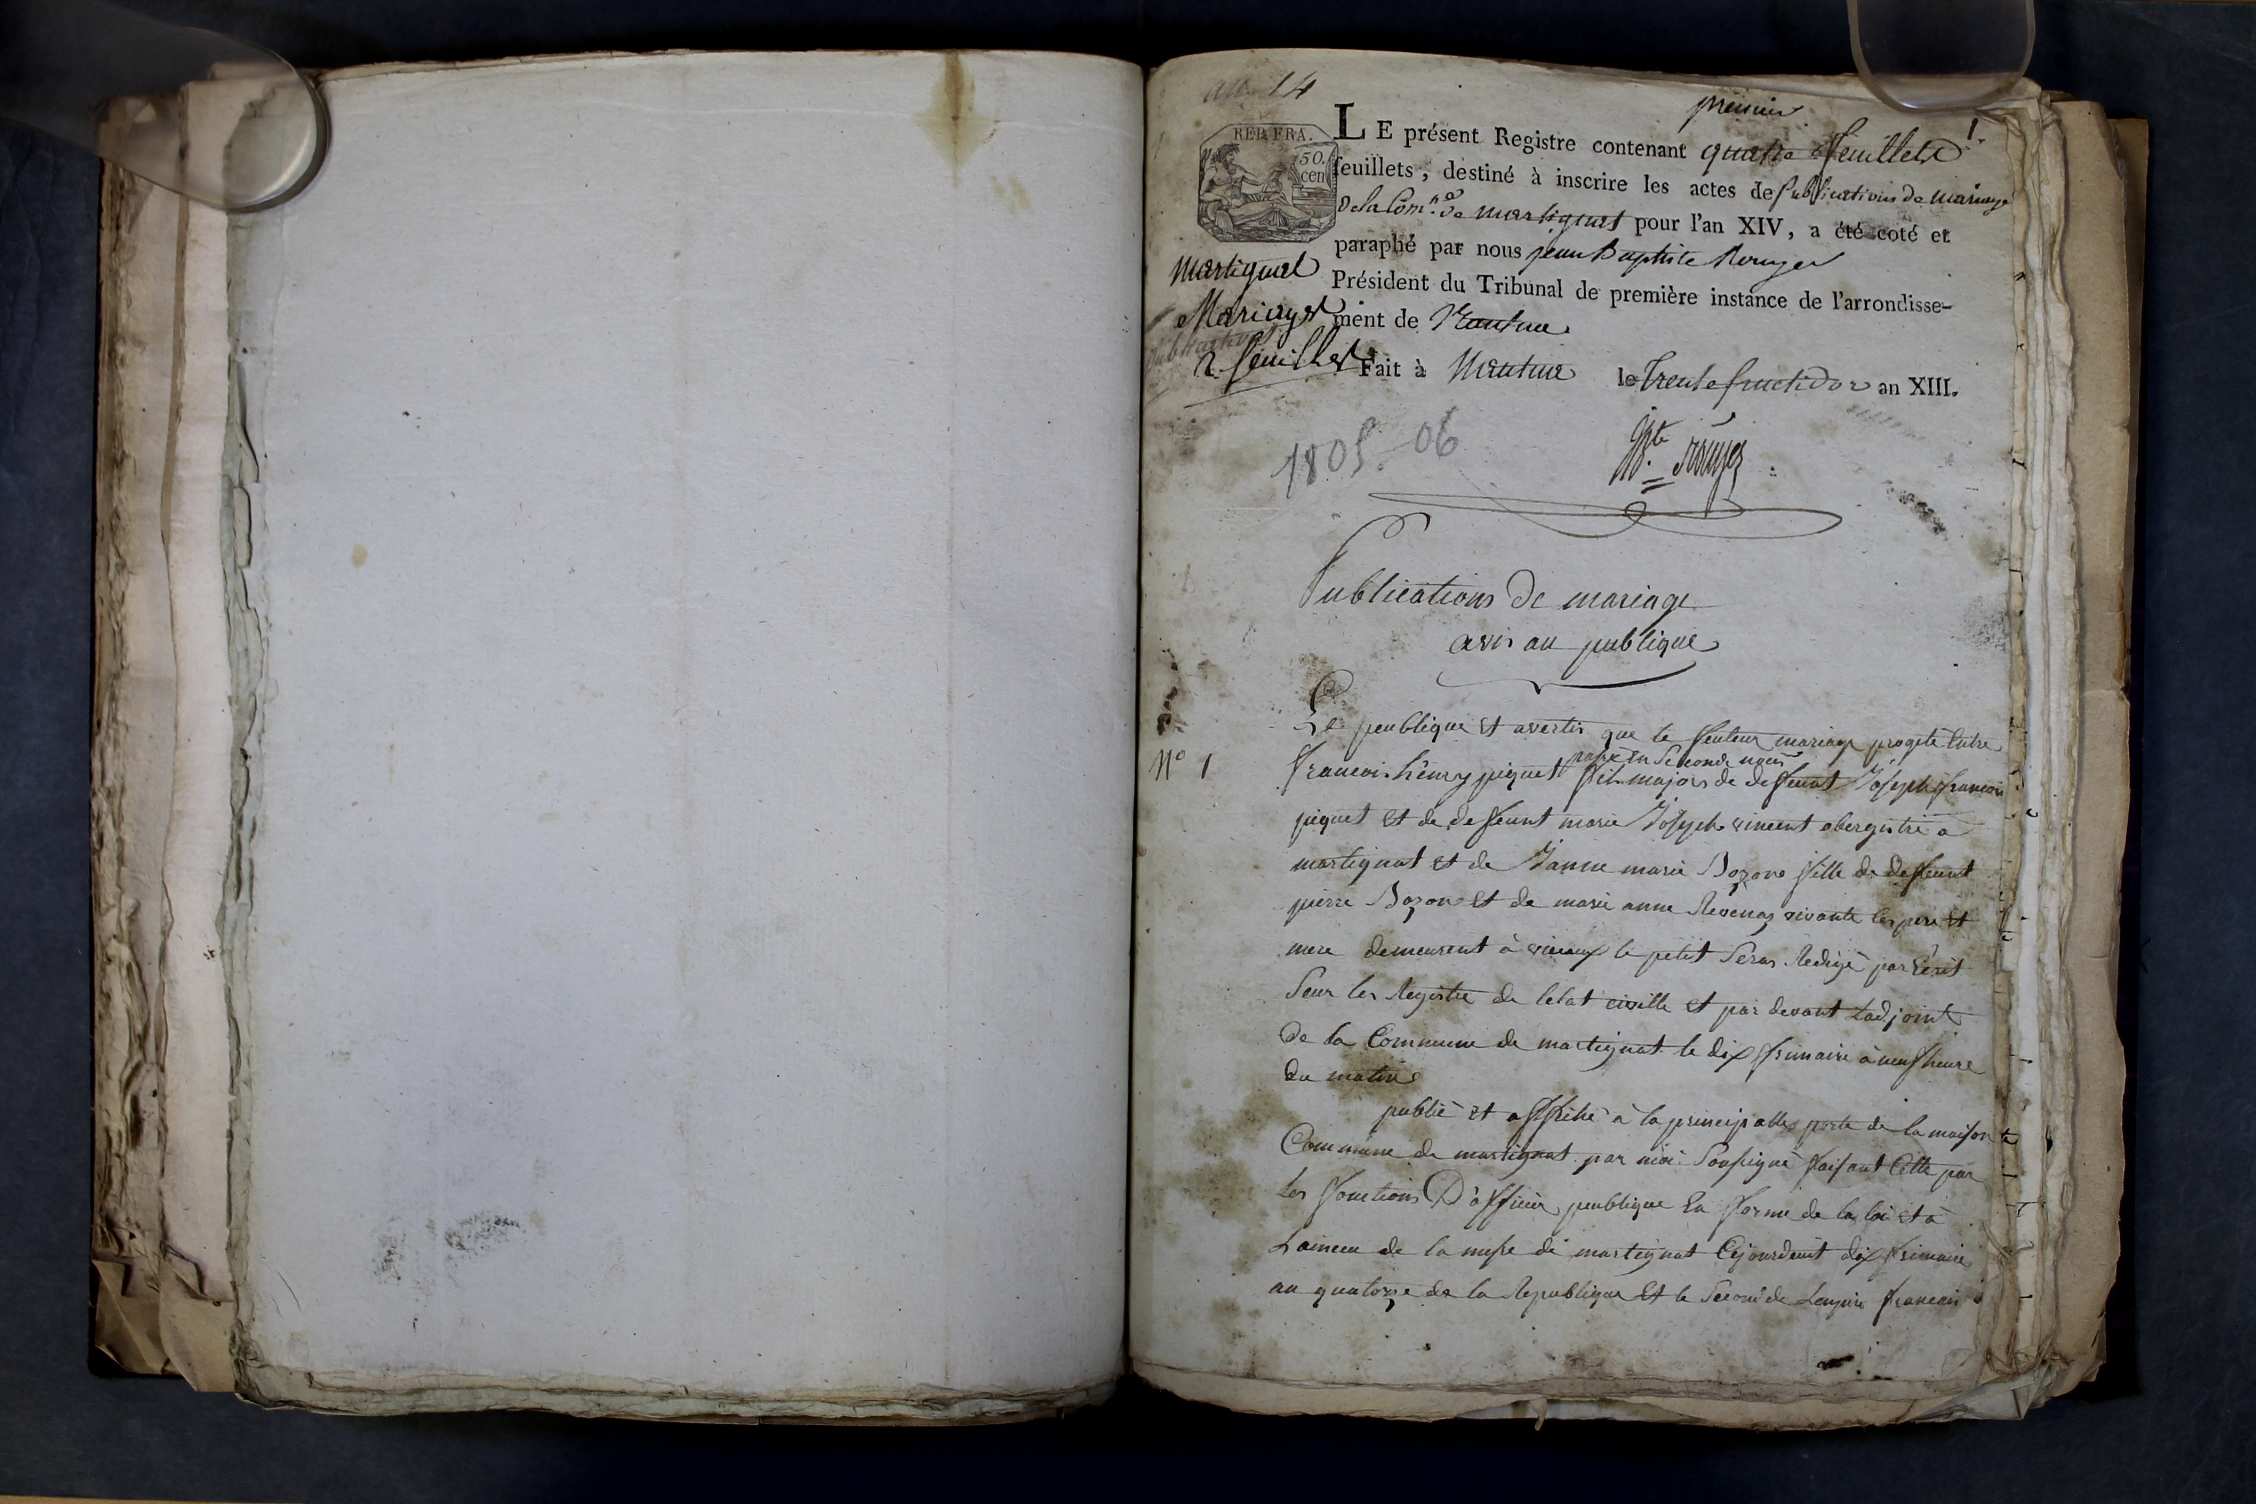 an 14
premier
1.
REP. FRA.
50.
cen
LE présent Registre contenant quatre feuillets
feuillets, destiné à inscrire les actes de publications de mariage
De la Com.ne de martignat pour l'an XIV, a été coté et
paraphé par nous jean Baptiste Rouyer
Président du Tribunal de première instance de l'arrondisse-
ment de Nantua
Fait à Nantua le trente fructidor an XIII.
Martignat
Mariages
publications
2 feuillets
1805-06
JBte Rouyer
Publications de mariage
avis au publique
N° 1
Le peublique et avertis que le feuteur mariage progeté Entre
francois hênry piquet fils majors de deffeunt Joseph francois
en seconde noces
piquet et de deffeunt marie Joseph vincent obergistre a
martignat et de Janne marie Bozon fille de deffeunt
pierre Bozon et de marie anne Revenaz vivante les pere et
mere demeurent à le petit Seras Redigé par Ecrit
Seur les Registre de letat civille et par devant Ladjoint
De la Commune de martignat le dix frimaire à neuf heure
du matin
publié et affiché à la principalle porte de la maison
Commune de martignat par moi Soussigné faisant Cette par
Les fonctions D'officier peublique En forme de la loi et à
de la de martignat Cejourdeuit dix frimaire
an quatorze de la Republique Et le Second de Lempire francois